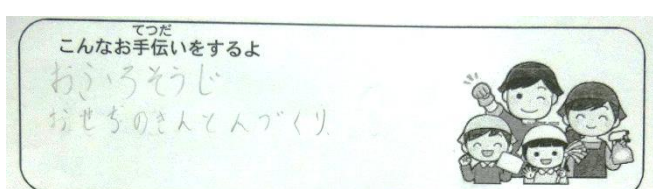 てつだ
こんなお手伝いをするよ
おふろそうじ
おせちのきんとんづくり